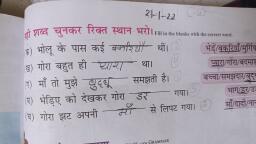 21-1-22
शब्द चुनकर रिक्त स्थान भरो। Fill in the blanks with the correct word.
भोलू के पास कई बकरियाँ थीं। भेड़ें/बकरियाँ/मुर्गि
गोरा बहुत ही प्यारा था। प्यारा/गोरा/बदमा
माँ तो मुझे बुद्धू समझती है। बच्चा/समझदार/बुद्
भेड़िए को देखकर गोरा डर गया। भाग/डर/
गोरा झट अपनी माँ से लिपट गया।